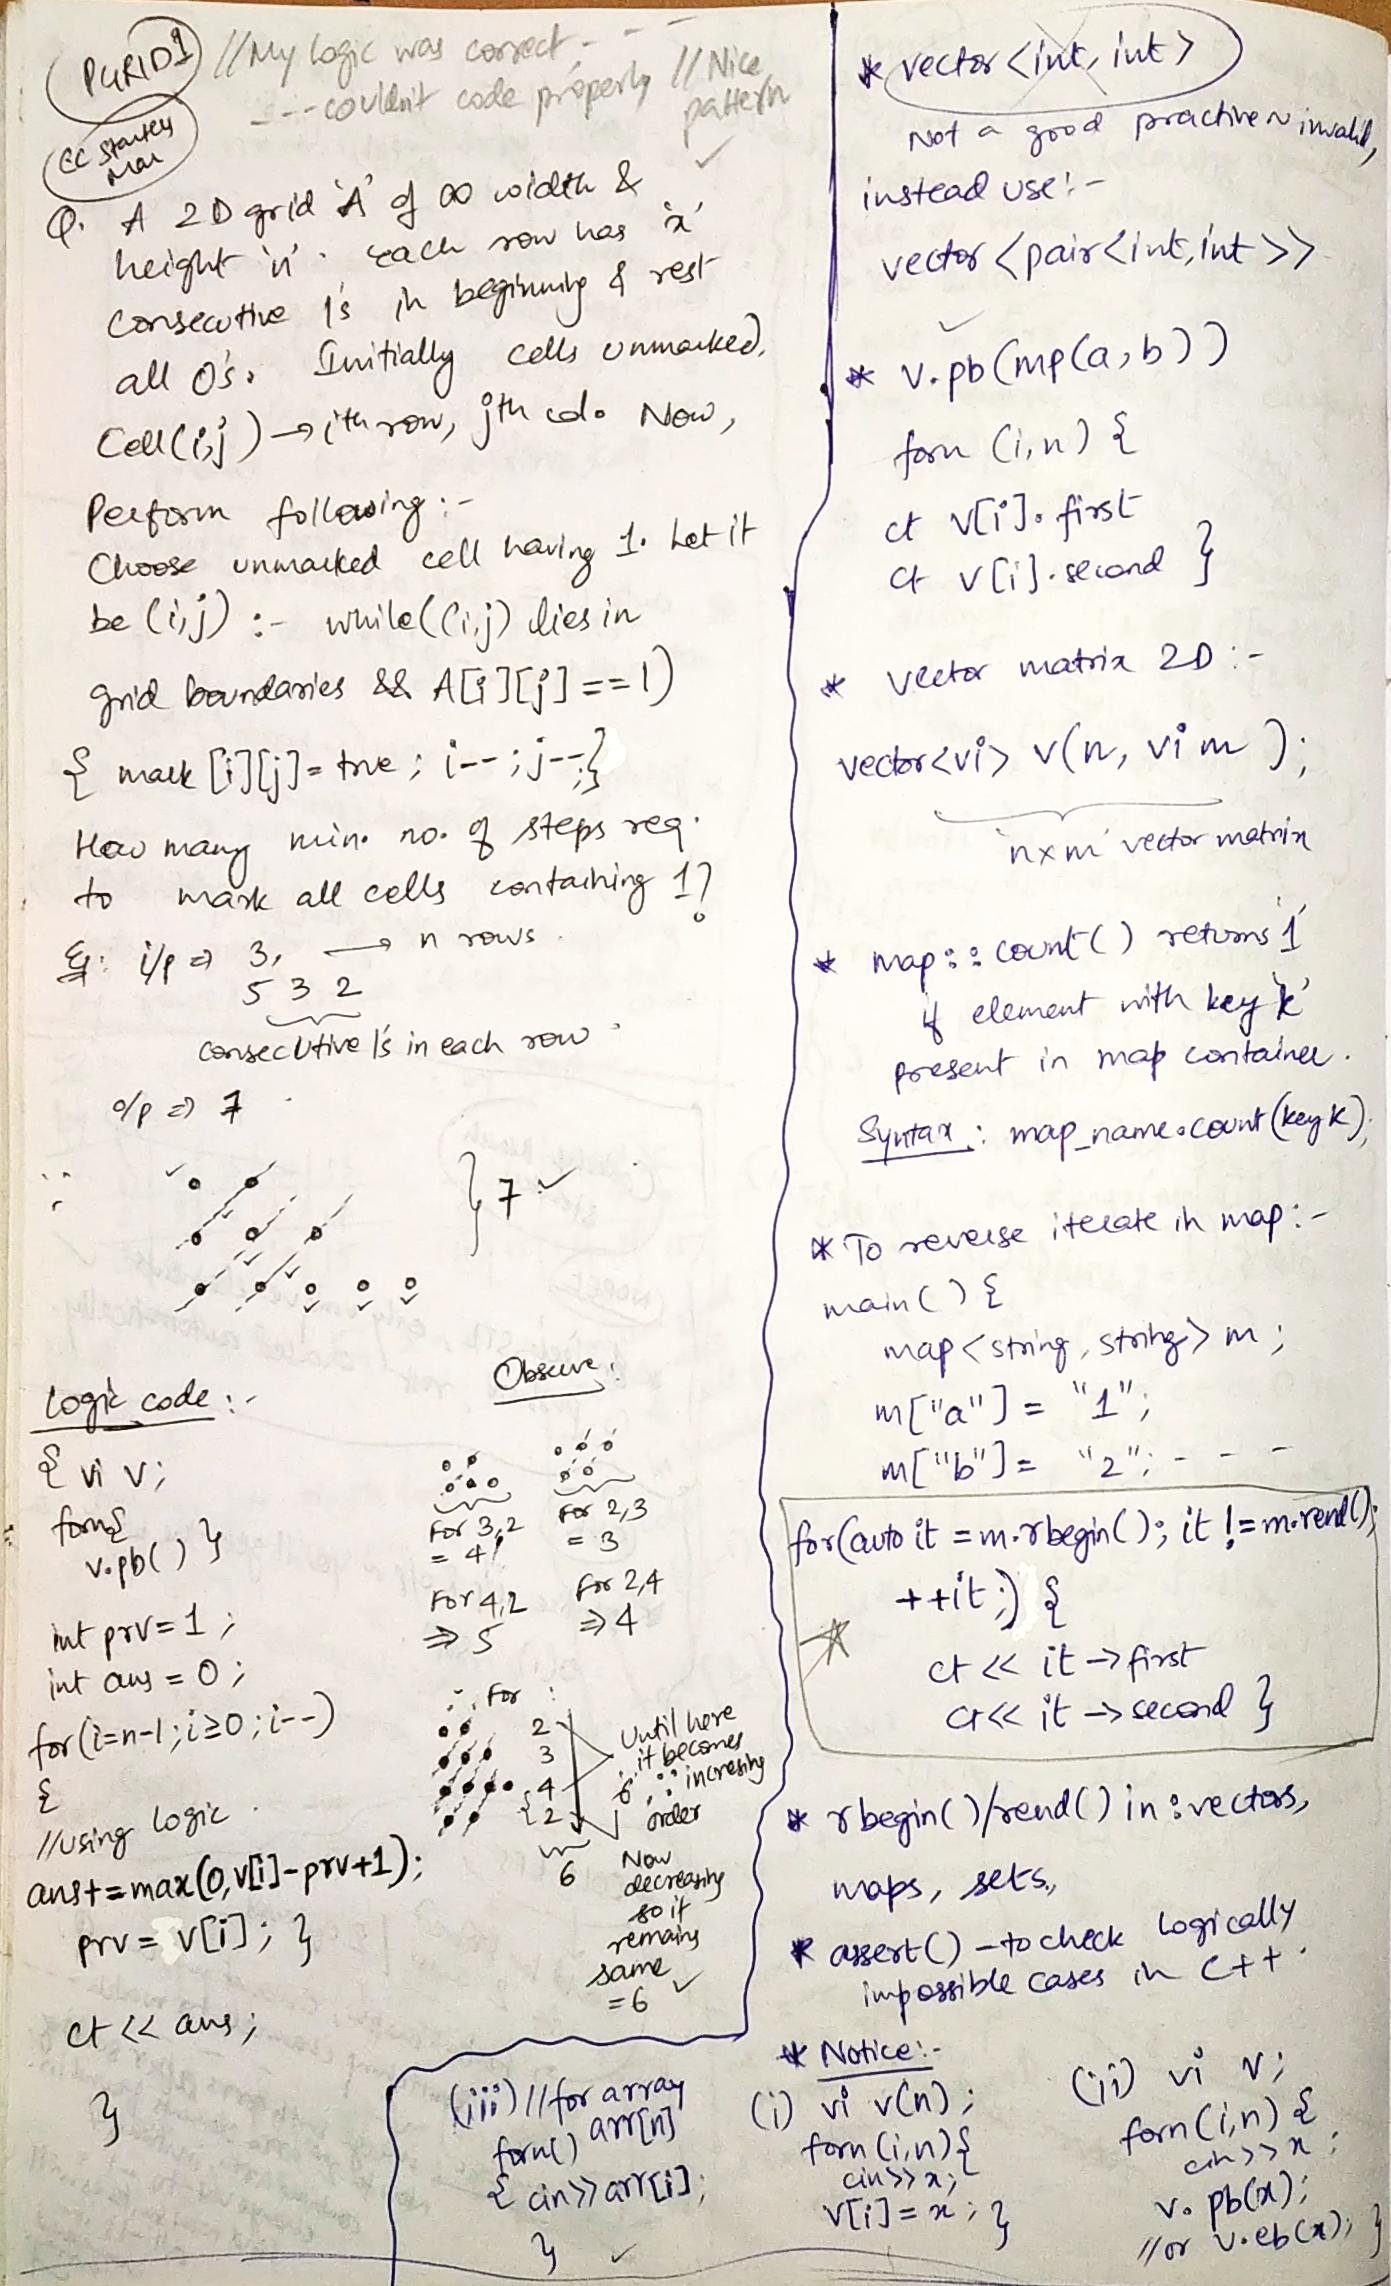 PGRID1
//My logic was correct - - -
- - - couldn't code properly
//Nice pattern
CC Starters
Mar
Q. A 2D grid 'A' of ∞ width &
height 'n'. Each row has 'x'
consecutive 1's in beginning & rest
all 0's. Initially cells unmarked.
Cell(i,j) → ith row, jth col. Now,
Perform following :-
Choose unmarked cell having 1. Let it
be (i,j) :- while((i,j) lies in
grid boundaries && A[i][j]==1)
{ mark [i][j]= true ; i-- ; j--;}
How many min. no. of steps req.
to mark all cells containing 1?
Eg: i/p ⇒ 3, → n rows.
5 3 2
consecutive 1's in each row
o/p ⇒ 7
} 7 ✓
Logic code :-
{ vi v;
forn{
v.pb( ) }
int prv=1 ;
int ans = 0 ;
for(i=n-1; i≥0; i--)
{
//using logic.
ans+=max(0,v[i]-prv+1);
prv = v[i]; }
ct << ans;
}
Observe:
For 3,2
= 4
For 2,3
= 3
For 4,2
⇒ 5
For 2,4
⇒ 4
∴ For :
2
3
4
2
6
Until here
it becomes
6 ∵ increasing
order
Now
decreasing
so it
remains
same
=6 ✓
(iii) //for array
arr[n]
forn()
{ cin>>arr[i];
} ✓
* vector <int, int>
Not a good practive ~ invalid,
instead use :-
vector <pair<int,int>>
* v.pb(mp(a,b))
forn (i,n) {
ct v[i].first
ct v[i].second }
* vector matrix 2D :-
vector<vi> v(n, vi m );
'nxm' vector matrix
* map::count() returns '1'
if element with key 'k'
present in map container.
Syntax : map_name.count(key k);
* To reverse iterate in map :-
main( ) {
map <string, string> m ;
m["a"] = "1";
m["b"] = "2"; - - -
for(auto it = m.rbegin(); it != m.rend();
++it;) {
ct << it → first
ct << it → second }
* rbegin()/rend() in : vectors,
maps, sets.,
* assert() - to check logically
impossible cases in C++.
* Notice :-
(i) vi v(n) ;
forn (i,n){
cin>>x;
v[i] = x ; }
(ii) vi v;
forn(i,n) {
cin>>x ;
v.pb(x);
//or v.eb(x); }